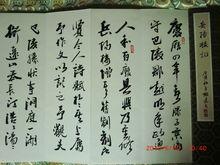 岳陽樓記
慶曆四年春滕子京謫
守巴陵郡越明年政通
人和百廢具興乃重修
岳陽樓增其舊制刻唐賢
今人詩賦於其上屬
予作文以記之予觀夫
巴陵勝狀在洞庭一湖
銜遠山吞長江浩浩湯